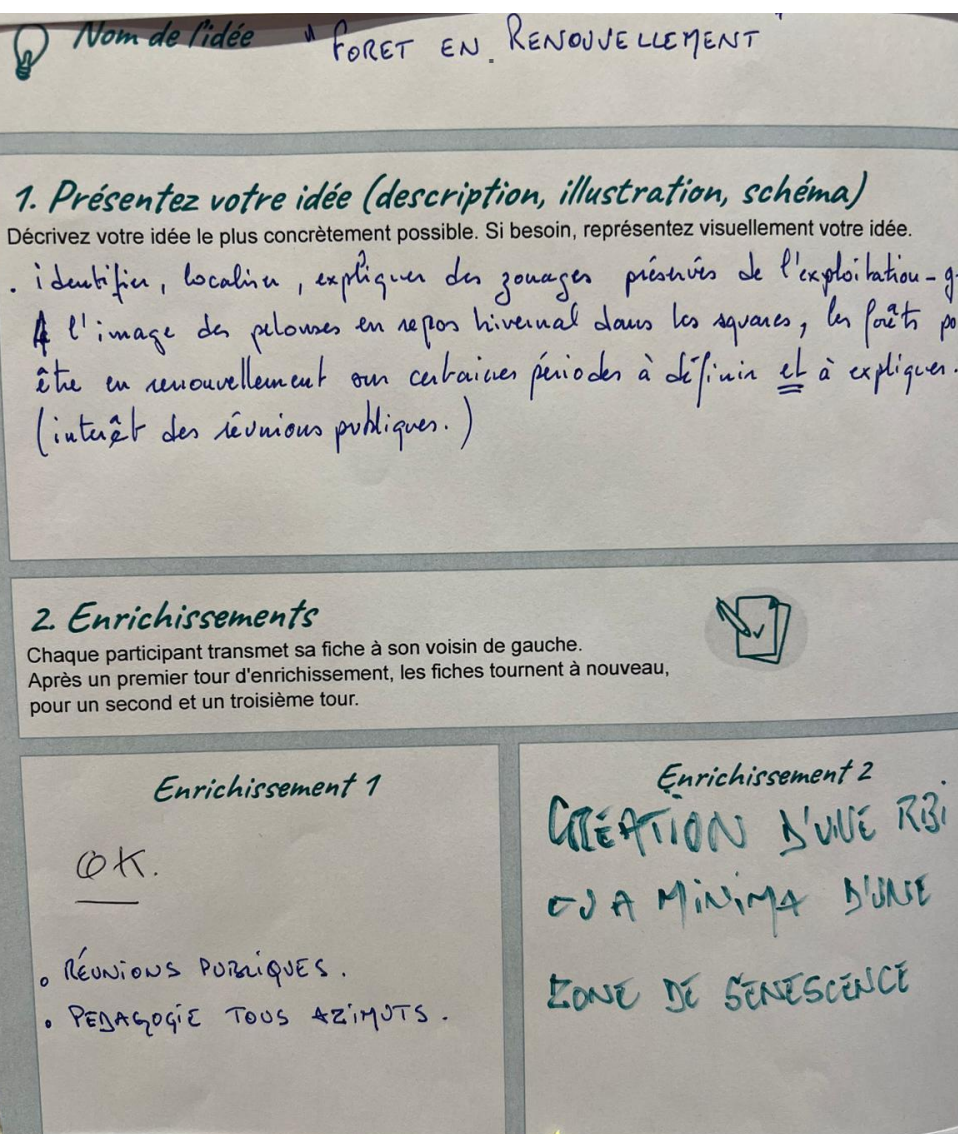 Nom de l'idée " FORET EN RENOUVELLEMENT "
1. Présentez votre idée (description, illustration, schéma)
Décrivez votre idée le plus concrètement possible. Si besoin, représentez visuellement votre idée.
. identifier, localiser, expliquer des zonages préservés de l'exploitation - g
A l'image des pelouses en repos hivernal dans les squares, les forêts po
être en renouvellement sur certaines périodes à définir et à expliquer.
(intérêt des réunions publiques.)
2. Enrichissements
Chaque participant transmet sa fiche à son voisin de gauche.
Après un premier tour d'enrichissement, les fiches tournent à nouveau,
pour un second et un troisième tour.
Enrichissement 1
OK.
. RÉUNIONS PUBLIQUES.
. PEDAGOGIE TOUS AZIMUTS.
Enrichissement 2
CRÉATION D'UNE RBi
OU A MINIMA D'UNE
ZONE DE SENESCENCE